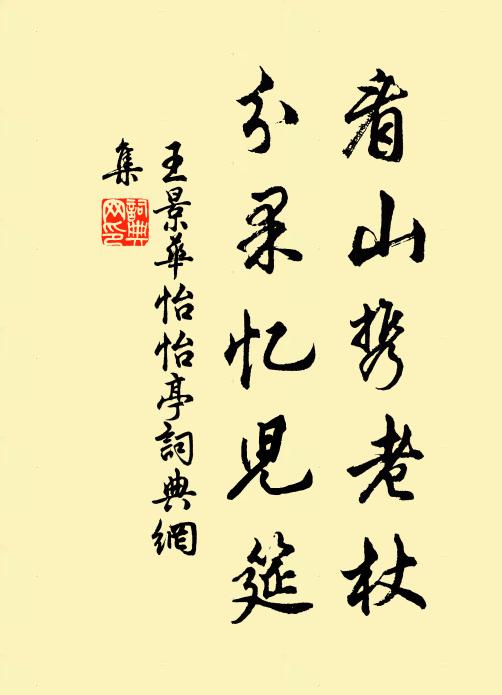 看山携老杖
分果忆児筵
王景華怡怡亭詞典網
集
詞典
网印